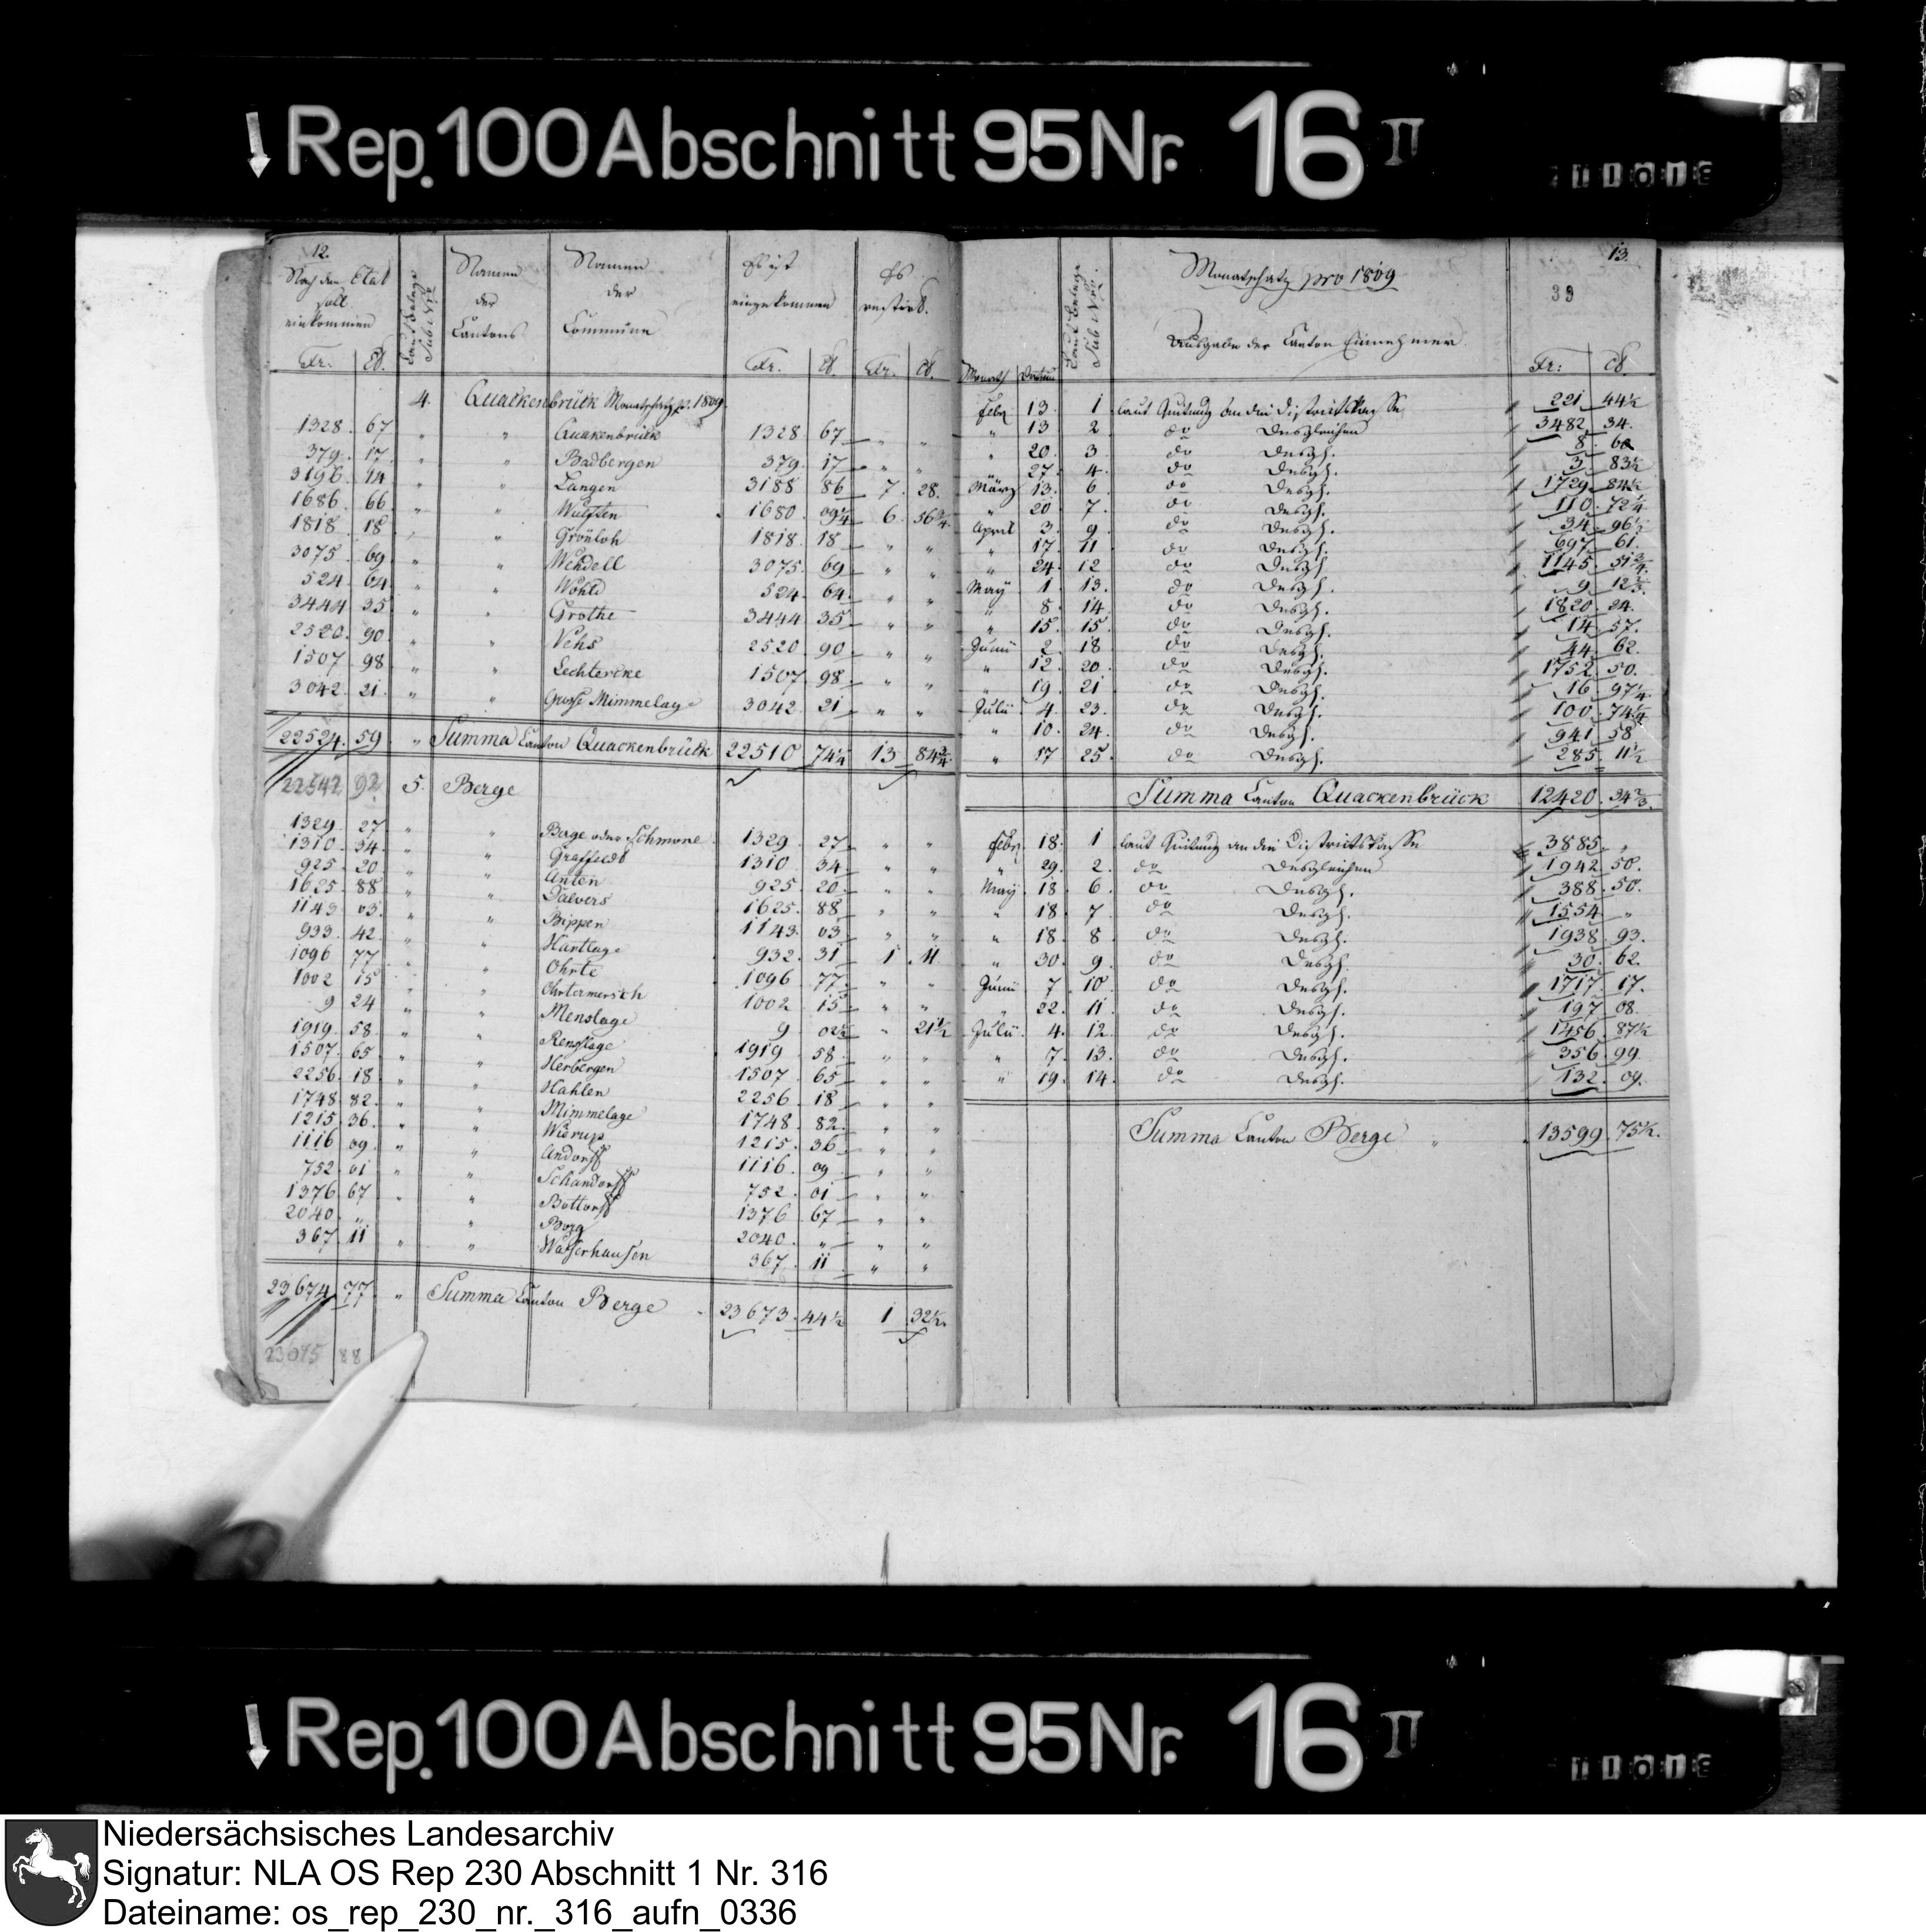 Rep. 100 Abschnitt 95 Nr. 16 II
12.
Nach dem Etat soll einkommen
Laut Belege Sub Nro
Namen der Cantons
Namen der Commüne
Es ist eingekommen
Es restirt.
Fr. Ct. Fr. Ct. Fr. Ct.
4. Quackenbrück Monatschatz p. 1809
1328. 67 " " Quakenbrück 1328 67 " "
379. 17 " " Badbergen 379. 17 " "
3196. 14 " " Langen 3188 86 7. 28.
1686. 66 " " Wulften 1680. 09 1/4 6. 56 3/4
1818. 18 " " Grönloh 1818. 18 " "
3075. 69 " " Wehdell 3075. 69 " "
524. 64 " " Wohld 524. 64 " "
3444 35 " " Grothe 3444 35 " "
2520. 90 " " Vehs 2520 90 " "
1507. 98 " " Lechtercke 1507 98 " "
3042. 21 " " Grosse Mimmelage 3042. 21 " "
22524. 59 " Summa Canton Quackenbrück 22510 74 1/4 13 84 3/4
22542 92 5. Berge
1329. 27 " " Berge oder Schmone 1329. 27 " "
1310. 34 " " Graffeldt 1310 34 " "
925. 20 " " Anten 925. 20 " "
1625. 88 " " Dalvers 1625. 88 " "
1143 03 " " Bippen 1143. 03 " "
933. 42 " " Hartlage 932. 31 1. 11
1096 77 " " Ohrte 1096 77 " "
1002 15 " " Ohrtermersch 1002. 15 " "
9 24 " " Menslage 9 02 1/2 " 21 1/2
1919. 58 " " Renslage 1919 58 " "
1507. 65 " " Herbergen 1507 65 " "
2256. 18 " " Hahlen 2256 18 " "
1748. 82 " " Mimmelage 1748. 82 " "
1215. 36 " " Wierup 1215. 36 " "
1116 09 " " Andorff 1116. 09 " "
752. 01 " " Schandorff 752. 01 " "
1376 67 " " Bottorff 1376 67 " "
2040. " " Borg 2040. " " "
367. 11 " " Wasserhausen 367. 11 " "
23674. 77 " Summa Canton Berge 23673. 44 1/2 1 32 1/2
88
13.
39
Monatschatz pro 1809
Laut Belege Sub Nro.
Ausgabe der Canton Einnehmer
Monath Datum Fr: Ct.
Febr 13. 1 laut Quitung an die Districtskasse 221 44 1/2
" 13 2 do Desgleichen 3482. 34.
" 20 3 do Desgl. 8. 60
" 27 4. do Desgl. 3. 83 1/2
März 13. 6. do Desgl. 1729. 84 1/2
" 20 7. do Desgl. 110. 72 1/4
April 3. 9. do Desgl. 34. 96 1/2
" 17 11 do Desgl. 697. 61.
" 24 12 do Desgl. 1145. 51 3/4
May 1. 13. do Desgl. 9. 12 1/3
" 8. 14 do Desgl. 1820. 24.
" 15. 15. do Desgl. 14. 57.
Junii 2. 18 do Desgl. 44. 62.
" 12. 20. do Desgl. 1752. 50.
" 19. 21 do Desgl. 16. 97 1/4
Julii 4. 23. do Desgl. 100. 74 1/4
" 10. 24. do Desgl. 941. 58
" 17 25. do Desgl. 285. 11 1/2
Summa Canton Quackenbrück 12420. 34 2/3.
Febr 18. 1 laut Quitung an die Districtskasse 3885. "
" 29. 2. do Desgleichen 1942 50.
May 18 6. do Desgl. 388. 50.
" 18. 7 do Desgl. 1554 "
" 18 8 do Desgl. 1938. 93.
" 30. 9. do Desgl. 30. 62.
Junii 7 10. do Desgl. 1717. 17.
" 22. 11 do Desgl. 197 08.
Julii 4. 12. do Desgl. 1456. 87 1/2
" 7. 13. do Desgl. 356. 99.
" 19. 14. do Desgl. 132. 09.
Summa Canton Berge " 13599. 75 1/2.
Rep. 100 Abschnitt 95 Nr. 16 II
Niedersächsisches Landesarchiv
Signatur: NLA OS Rep 230 Abschnitt 1 Nr. 316
Dateiname: os_rep_230_nr._316_aufn_0336